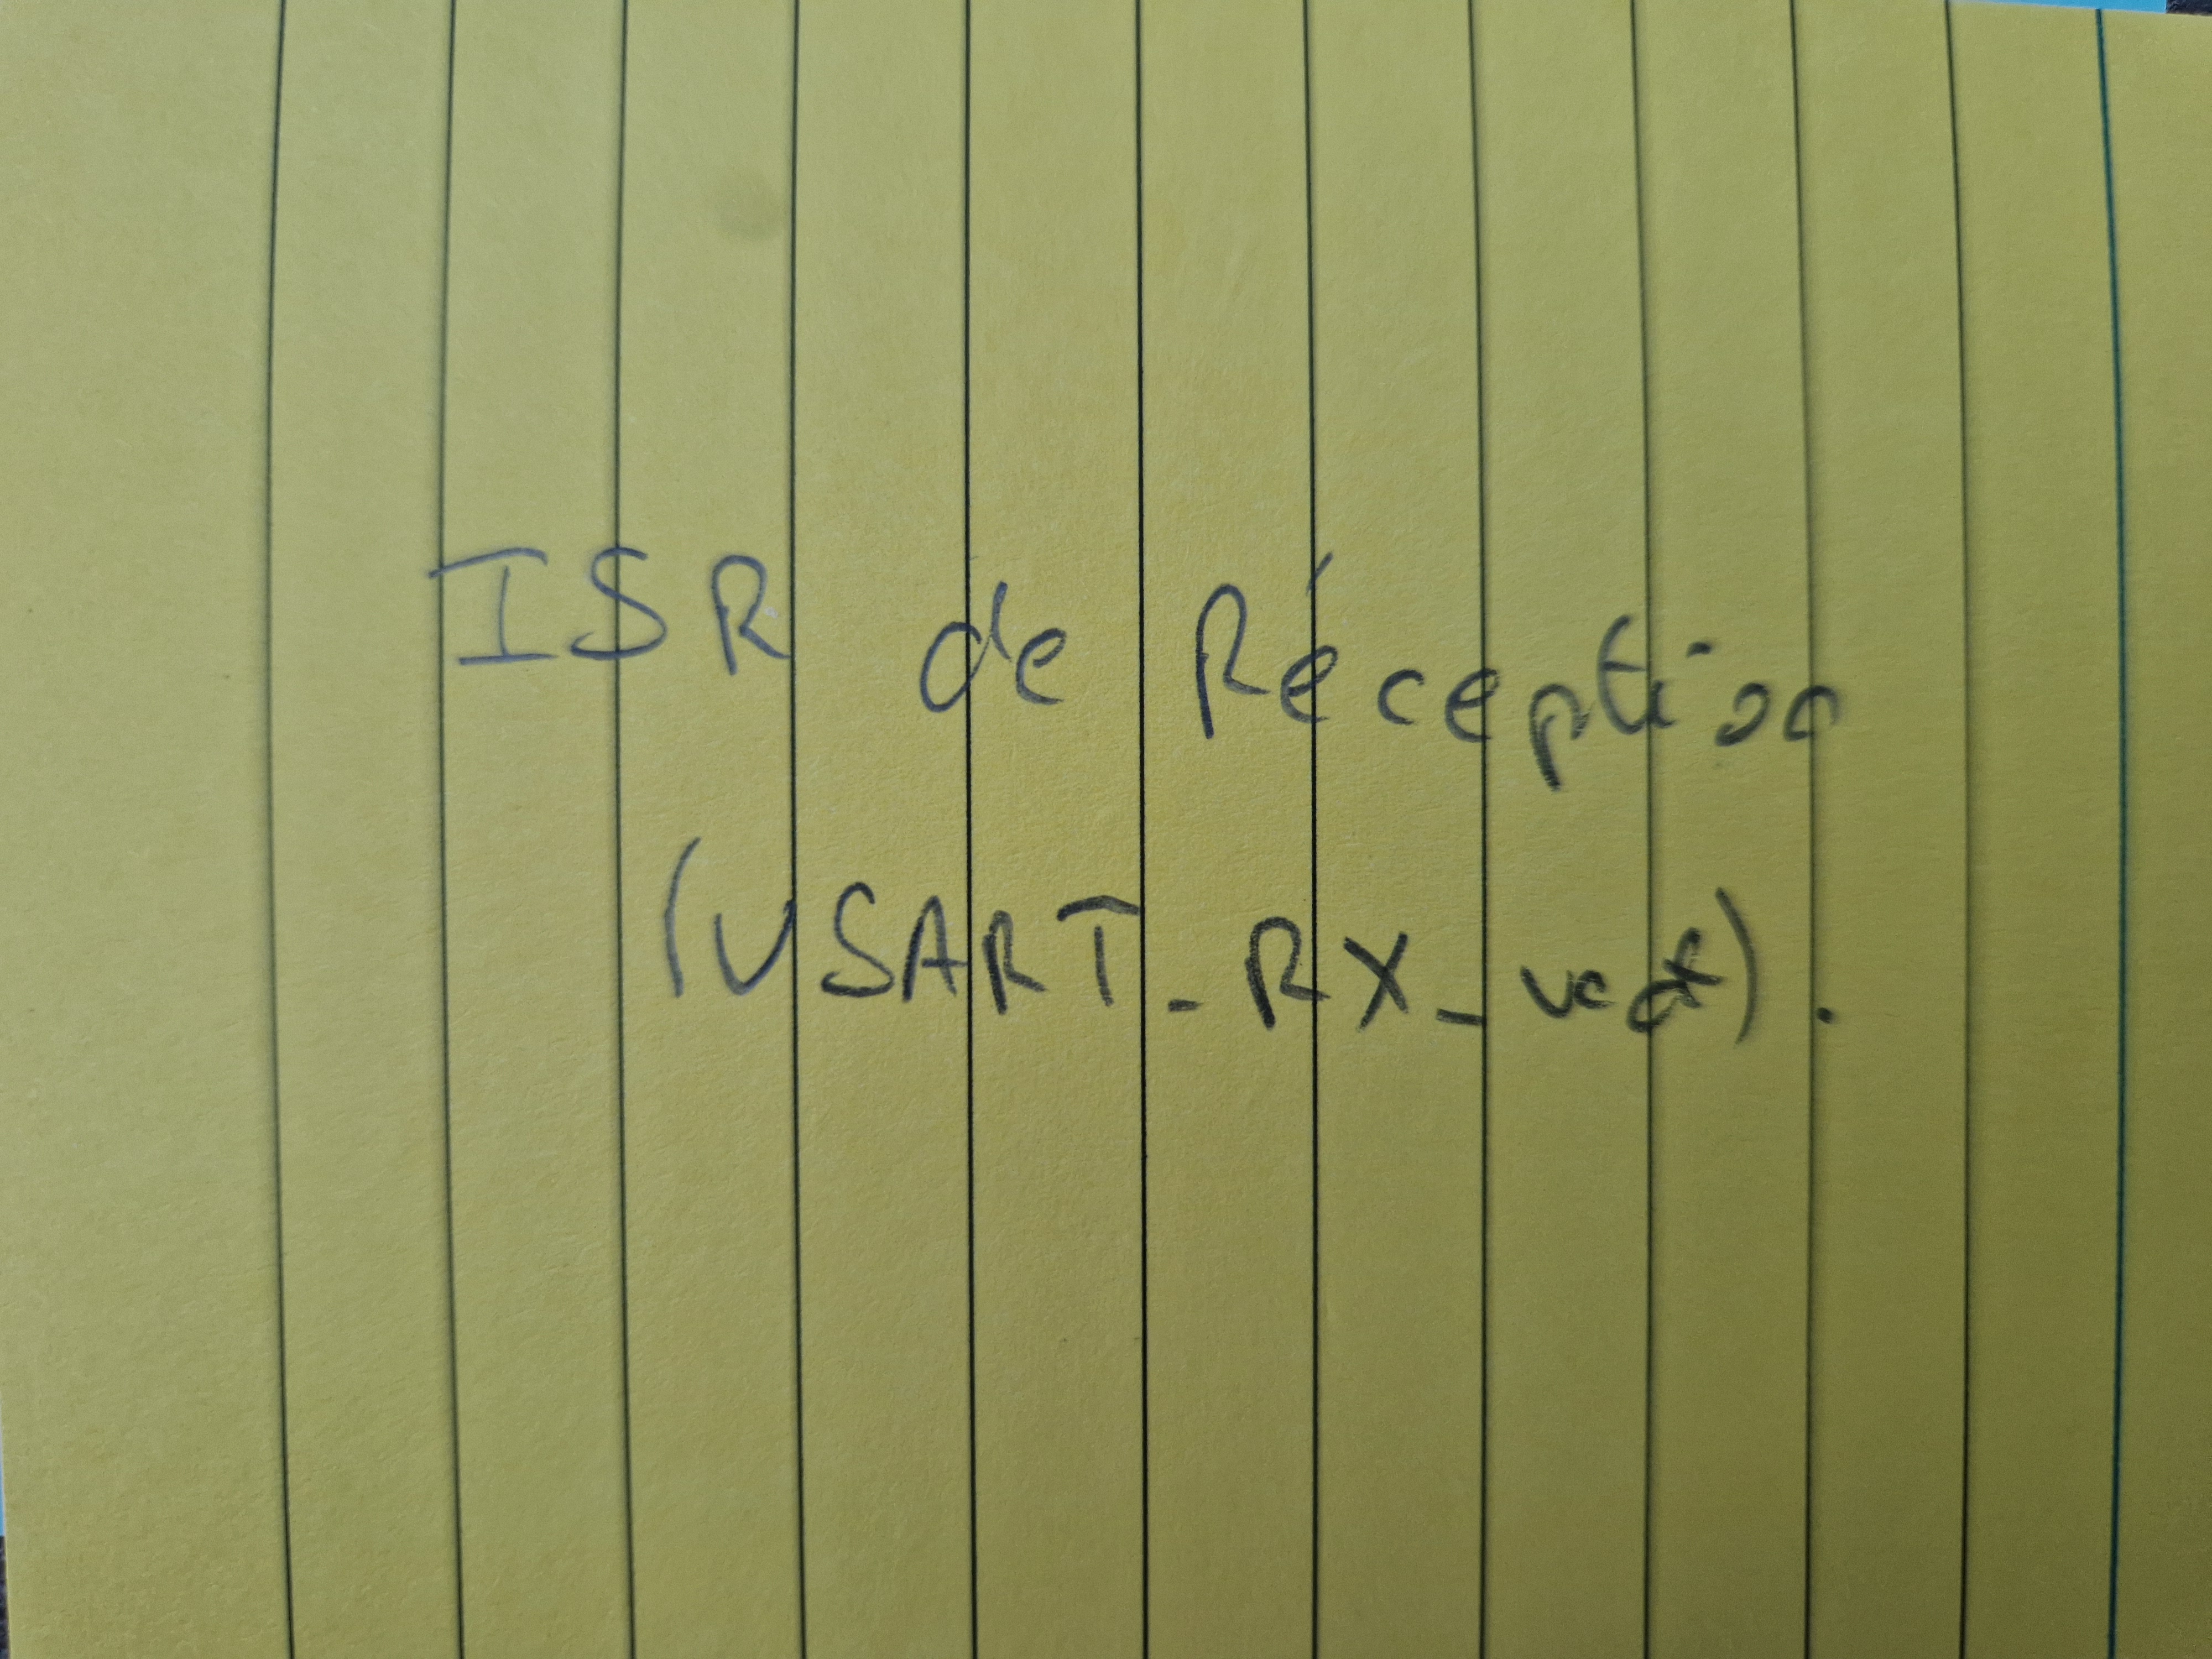 ISR de Réception
(USART-RX_vect).